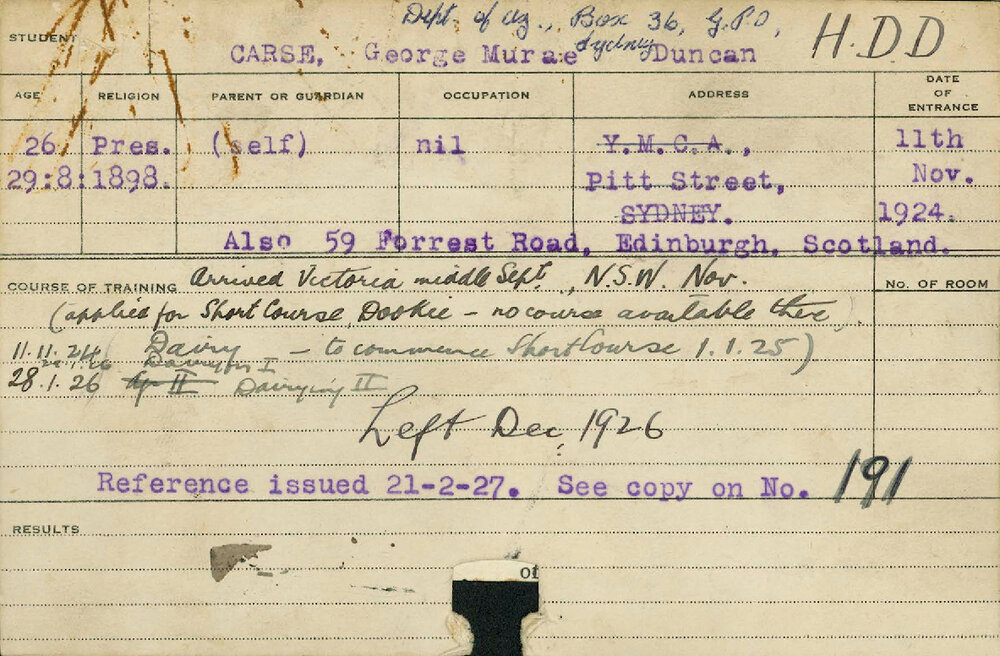 Dept. of Ag., Box 36, G.P.O,
Sydney
H.D.D
STUDENT CARSE, George Murae Duncan
AGE RELIGION PARENT OR GUARDIAN OCCUPATION ADDRESS DATE OF ENTRANCE
26 Pres. (self) nil Y.M.C.A., 11th
29:8:1898. Pitt Street, Nov.
SYDNEY. 1924.
Also 59 Forrest Road, Edinburgh, Scotland.
COURSE OF TRAINING Arrived Victoria middle Sept., N.S.W. Nov. No. OF ROOM
(applied for Short Course, Dookie - no course available there).
11.11.24 (Dairy - to commence Short Course 1.1.25)
Dairying I
28.1.26 II Dairying II
Left Dec. 1926
Reference issued 21-2-27. See copy on No. 191
RESULTS
of